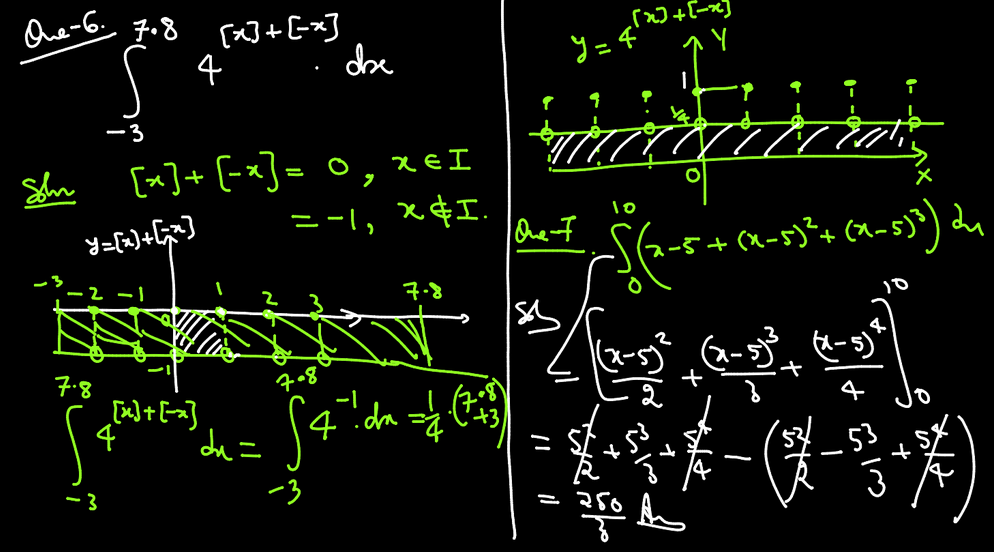 Que-6. ∫_{-3}^{7.8} 4^{[x]+[-x]} . dx
Soln [x]+[-x] = 0, x ∈ I
= -1, x ∉ I.
y=[x]+[-x]
-3 -2 -1 0 1 2 3 7.8
-1
∫_{-3}^{7.8} 4^{[x]+[-x]} dx = ∫_{-3}^{7.8} 4^{-1}.dx = 1/4 . (7.8+3)
y = 4^{[x]+[-x]}
Y
1
1/4
O X
Que-7. ∫_{0}^{10} (x-5+(x-5)^2+(x-5)^3) dx
Sol = [(x-5)^2/2 + (x-5)^3/3 + (x-5)^4/4]_{0}^{10}
= 5^2/2 + 5^3/3 + 5^4/4 - (5^2/2 - 5^3/3 + 5^4/4)
= 250/3 An